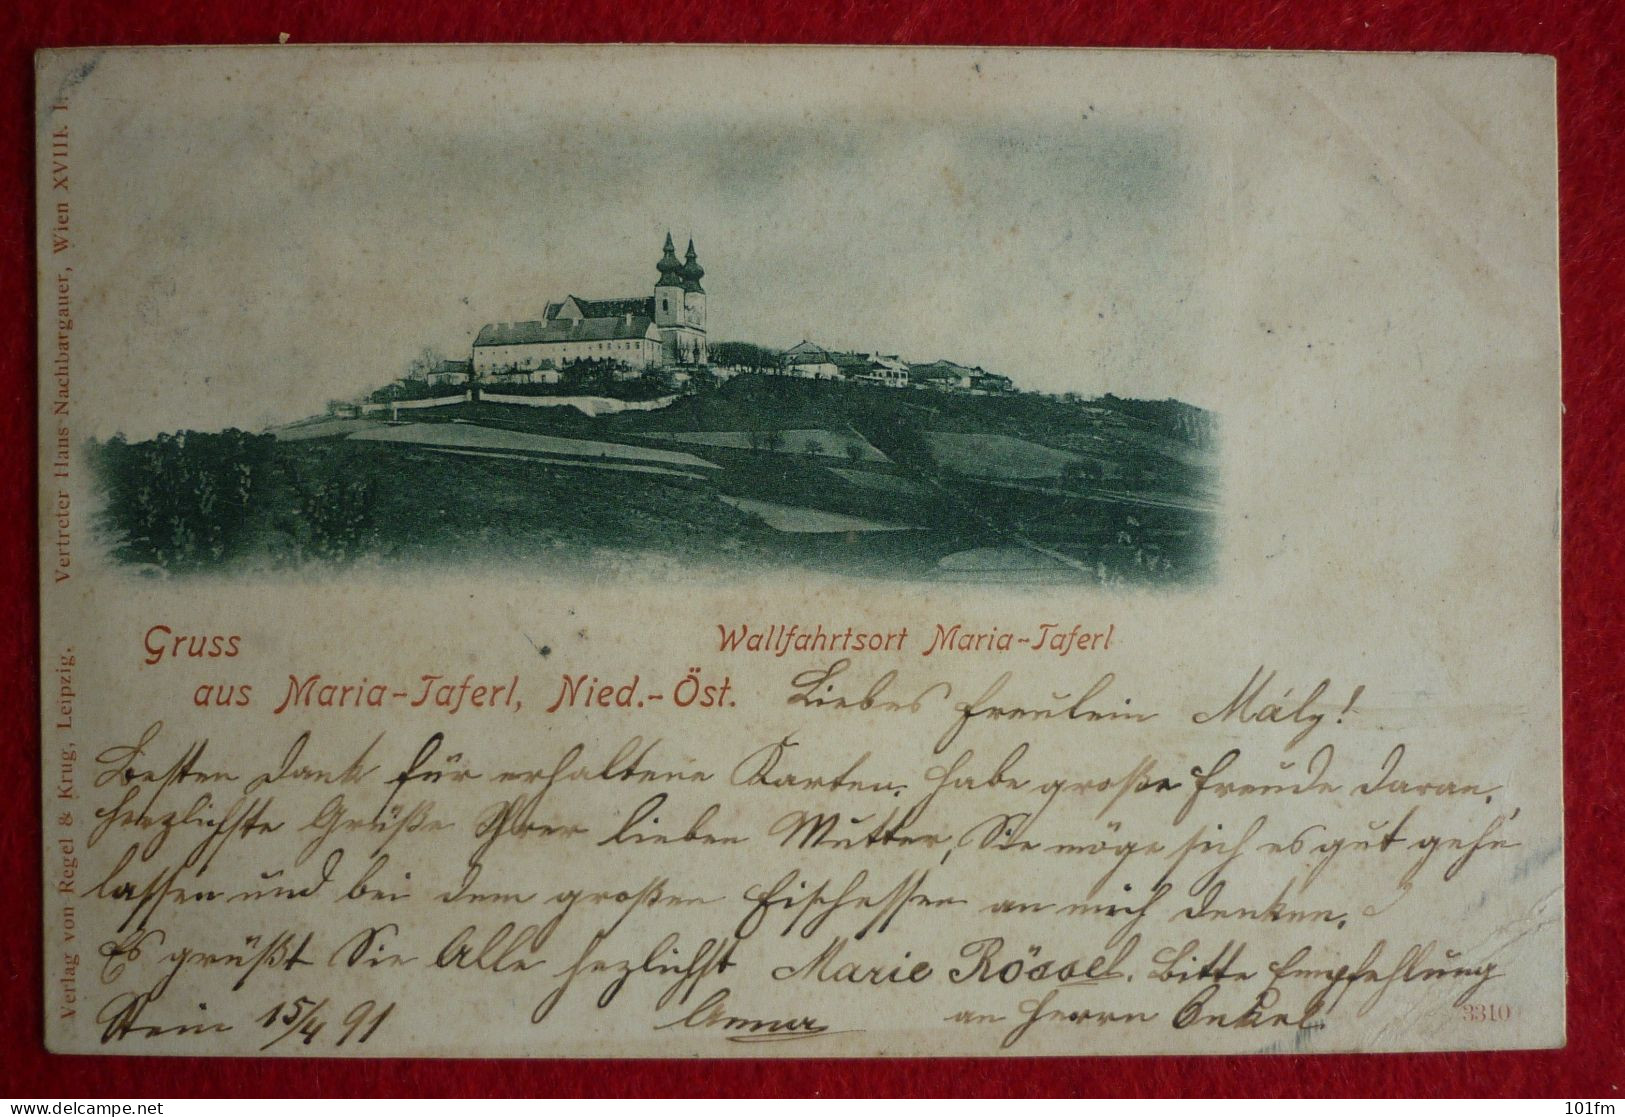 Verlag von Regel & Krug, Leipzig. Vertreter Hans Nachbargauer, Wien XVIII. 1.
Gruss
aus Maria-Taferl, Nied.-Öst.
Wallfahrtsort Maria-Taferl
Liebes Freulein Mály!
Besten Dank für erhaltene Karten. Habe große Freude daran.
Herzlichste Grüße Ihrer lieben Mutter, Sie möge sich es gut gehn
lassen und bei dem großen Fischessen an mich denken.
Es grüßt Sie Alle hezlichst Marie Rössel. Bitte Empfehlung
Stein 15/4 91 Anna an Herrn Onkel.
3310
101fm